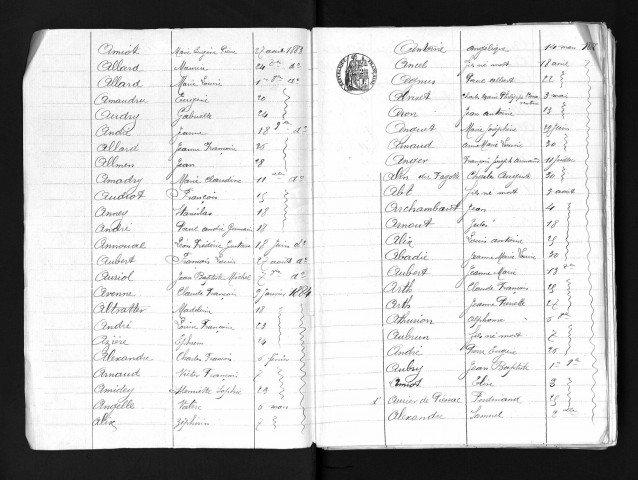 Amiot Marie Eugène Pierre 27 août 1883
Allard Maurice 24 8bre do
Allard Marie Louise 1er do
Amaudru Eugène 20
Audry Gabrielle 24
André Jeanne 18 do
Allard Jeanne Françoise 26
Allmen Jean 28
Amadry Marie Claudine 11 do
Audriot François 15
Anney Stanislas 18
André Paul André Germain 18
Annoual Léon Frédéric 18 Juin do
Aubert François Louis 27 août do
Auriol Jean Baptiste Michel 7 do
Avenne Claude François 2 janvier 1884
Altratter Madeleine 18
André Louise Françoise 23
Azière Ephrem 24
Alexandre Charles Francis 6 février
Arnaud Victor François 7
Amidey Henriette Sophie 29
Amielle Valère 6 mars
Alix Zéphirin 7
Antoine Angélique 14 mars
Ancel fils né mort 18 avril
Agnus Paul Albert 22
Anset Charles Marie Philippe 3 mai
Aron Jean Antoine 13
Anquet Marie Joséphine 29 Juin
Arnaud Anne Marie Louise 30
Anger François Joseph Armand 11 juillet
Charles Auguste 30
Abt fils né mort 3 août
Archambault Jean 4
Arnoult Jules 18
Alix Louis Antoine 29
Abadie Jeanne Marie 30
Aubert Jeanne Marie 13
Arth Claude François 25
Arth Jeanne Pierrette 27
Alphonse 6
Aubrun fils né mort 7
André Pierre Eugène 20
Aubry Jean Baptiste 1er
Amiot Céline 3
x Aurier de Piessac Ferdinand 25
Alexandre Samuel 2